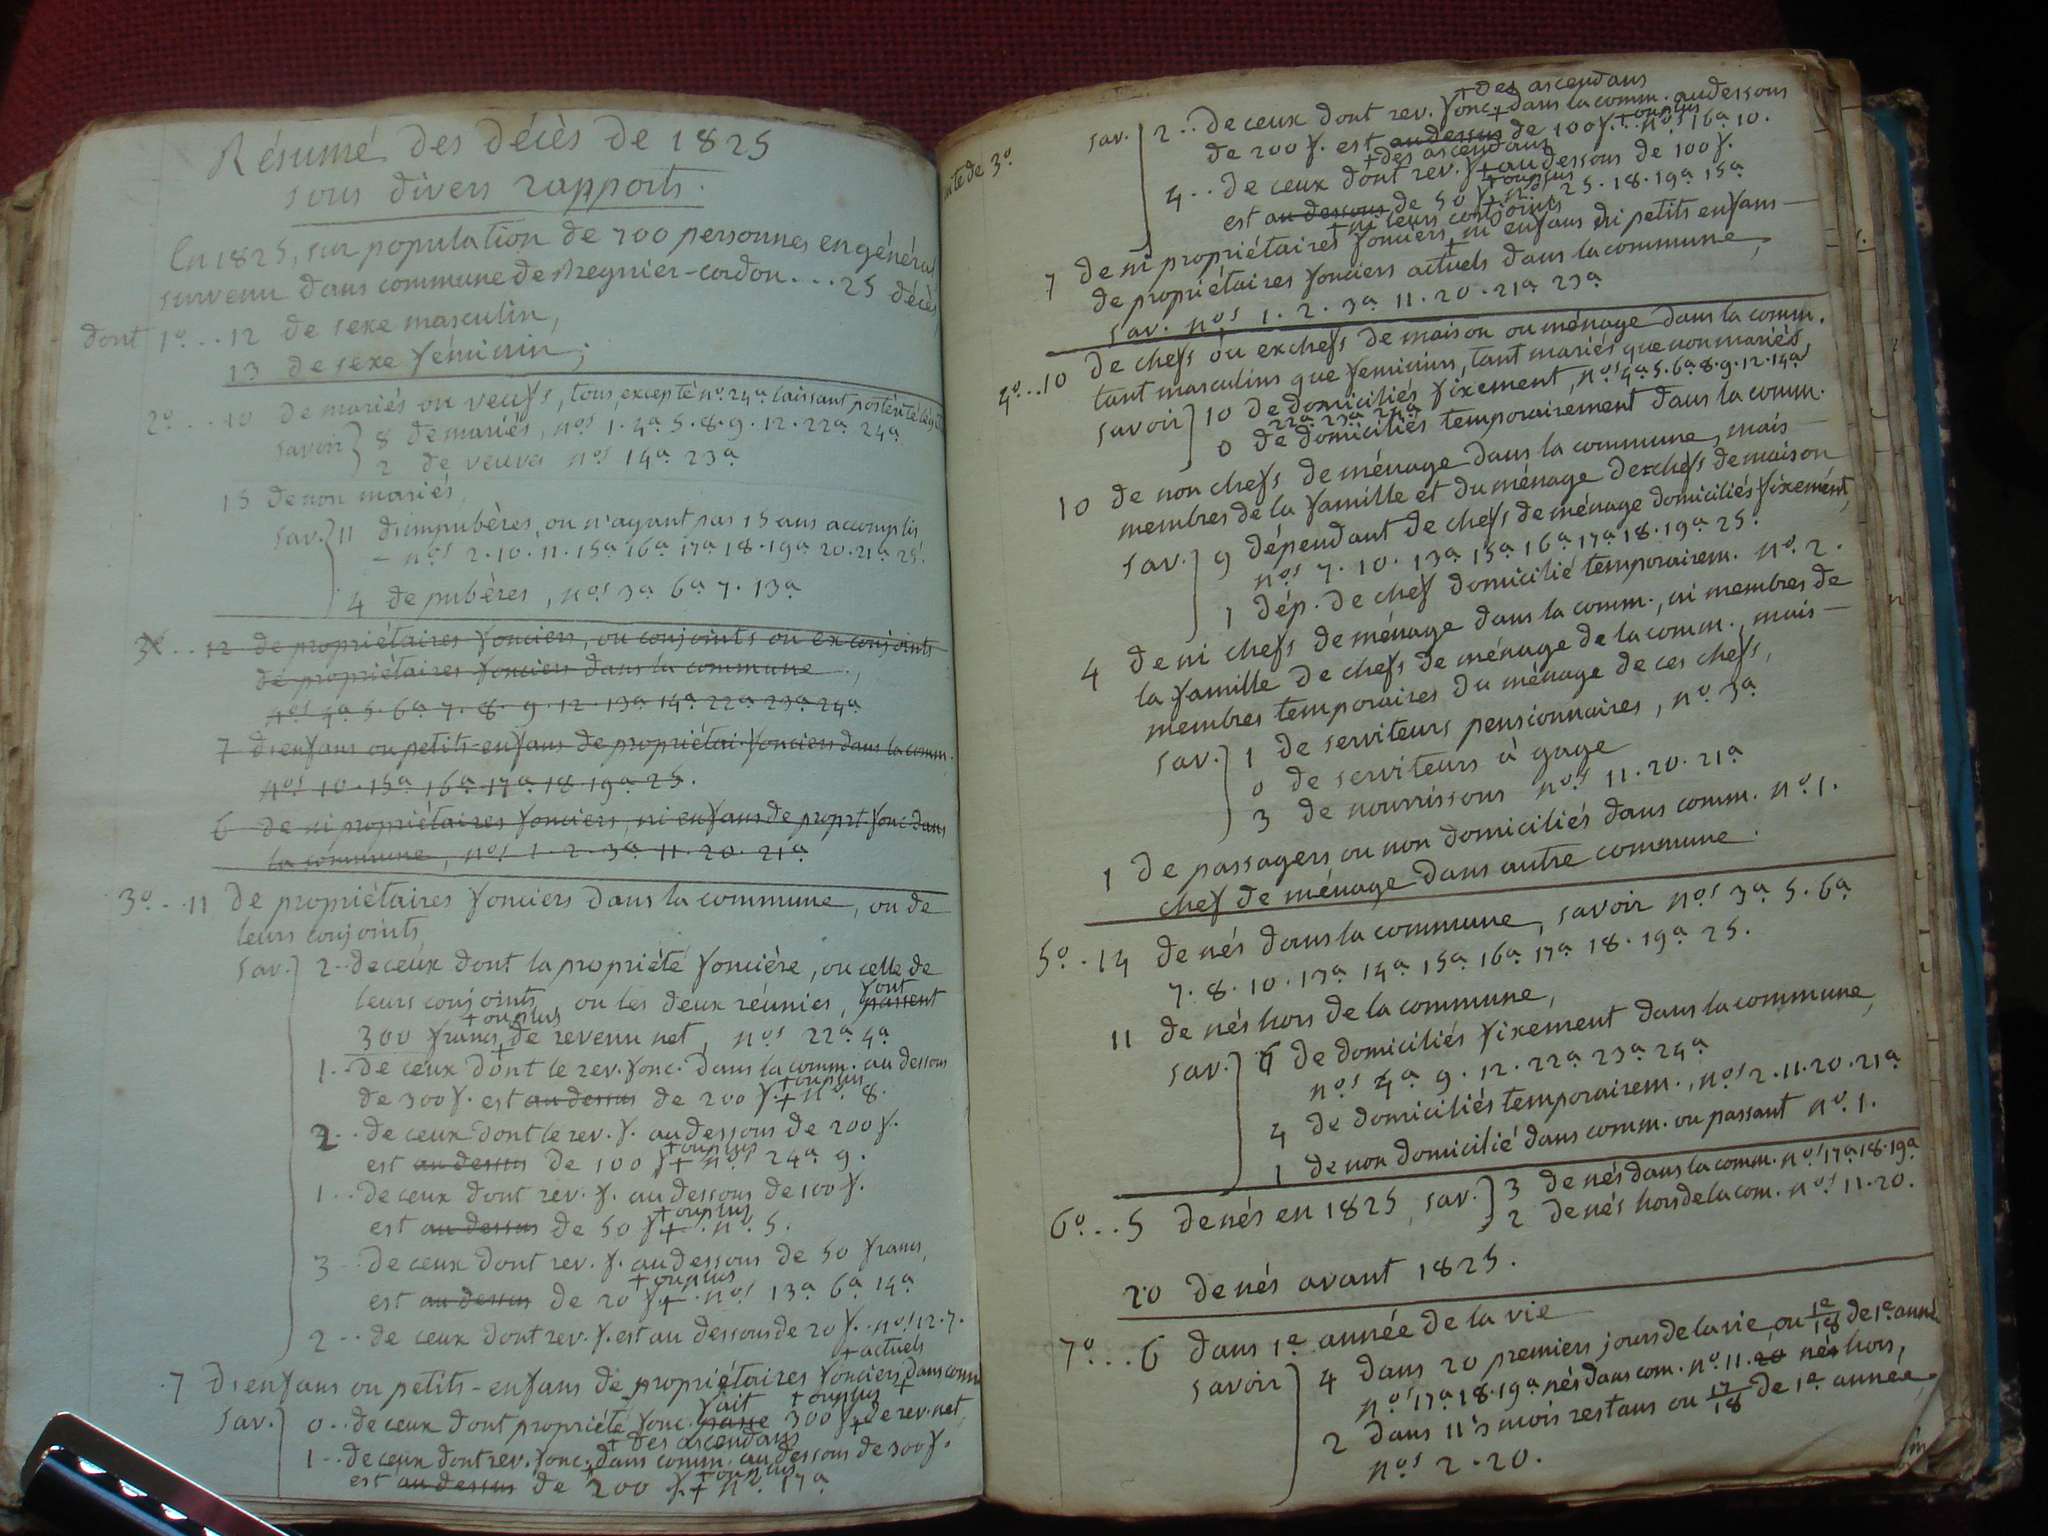 Résumé des décès de 1825
sous divers rapports.
En 1825, sur population de 700 personnes en général
survenu dans commune de Bregnier-cordon.... 25 décès,
dont 1º... 12 de sexe masculin,
13 de sexe féminin;
2º... 10 de mariés ou veufs, tous, excepté nº 24a laissant postérité
savoir } 8 de mariés, nos 1. 4a 5. 8. 9. 12. 22a 24a
2 de veuves nos 14a 23a
15 de non mariés,
sav. } 11 d'impubères, ou n'ayant pas 15 ans accomplis
- nos 2. 10. 11. 15a 16a 17a 18. 19a 20. 21a 25.
4 de pubères, nos 3a 6a 7. 13a
3º.. 12 de propriétaires fonciers, ou conjoints ou ex conjoints
de propriétaires fonciers dans la commune,
nos 4a 5. 6a 7. 8. 9. 12. 13a 14a 22a 23a 24a
7 d'enfans ou petits-enfans de propriétai. fonciers dans la comm.
nos 10. 15a 16a 17a 18. 19a 25.
6 de ni propriétaires fonciers, ni enfans de proprt fonc dans
la commune, nos 1. 2. 3a 11. 20. 21a
3º.. 11 de propriétaires fonciers dans la commune, ou de
leurs conjoints
sav. } 2.. de ceux dont la propriété foncière, ou celle de
leurs conjoints, ou les deux réunies, passent font
+ ou plus
300 francs + de revenu net, nos 22a 4a
1.. de ceux dont le rev. fonc. dans la comm. au dessous
de 300 f. est au dessus de 200 f. + + ou plus nº. 8.
2.. de ceux dont le rev. f. au dessous de 200 f.
est au dessus de 100 f + + ou plus nos 24a 9.
1.. de ceux dont rev. f. au dessous de 100 f.
est au dessus de 50 f + + ou plus nº. 5.
3.. de ceux dont rev. f. au dessous de 50 francs,
est au dessus de 20 f + + ou plus nos 13a 6a 14a
2.. de ceux dont rev. f. est au dessous de 20 f. nos 12. 7.
+ actuels
7 d'enfans ou petits-enfans de propriétaires fonciers + dans comm
sav. } 0.. de ceux dont propriété fonc. passe fait 300 f + + ou plus de rev. net,
+ des ascendans
1.. de ceux dont rev. fonc. + dans comm. au dessous de 300 f.
est au dessus de 200 f. + + ou plus nº. 17a
suite de 3º
+ des ascendans
sav. } 2.. de ceux dont rev. fonc. + dans la comm. au dessous
de 200 f. est au dessus de 100 f. + + ou plus nos 16a 10.
+ des ascendans
4.. de ceux dont rev. f + au dessous de 100 f.
est au dessous de 50 f + + ou plus nos 25. 18. 19a 15a
+ ni leurs conjoints
7 de ni propriétaires fonciers + ni enfans ni petits enfans -
de propriétaires fonciers actuels dans la commune,
sav. nos 1. 2. 3a 11. 20. 21a 23a
4º... 10 de chefs ou exchefs de maison ou ménage dans la comm.
tant masculins que féminins, tant mariés que non mariés,
savoir } 10 de domiciliés fixement, nos 4a 5. 6a 8. 9. 12. 14a
22a 23a 24a
0 de domiciliés temporairement dans la comm.
10 de non chefs de ménage dans la commune, mais -
membres de la famille et du ménage d'exchefs de maison
sav. } 9 dépendant de chefs de ménage domiciliés fixement,
nos 7. 10. 13a 15a 16a 17a 18. 19a 25.
1 dép. de chef domicilié temporairem. nº. 2.
4 de ni chefs de ménage dans la comm., ni membres de
la famille de chefs de ménage de la comm., mais -
membres temporaires du ménage de ces chefs,
sav. } 1 de serviteurs pensionnaires, nº 3a
0 de serviteurs à gage
3 de nourrissons nos 11. 20. 21a
1 de passagers ou non domiciliés dans comm. nº. 1.
chef de ménage dans autre commune.
5º.. 14 de nés dans la commune, savoir nos 3a 5. 6a
7. 8. 10. 13a 14a 15a 16a 17a 18. 19a 25.
11 de nés hors de la commune,
sav. } 6 de domiciliés fixement dans la commune,
nos 4a 9. 12. 22a 23a 24a
4 de domiciliés temporairem., nos 2. 11. 20. 21a
1 de non domicilié dans comm. ou passant nº. 1.
6º... 5 de nés en 1825, sav. } 3 de nés dans la comm. nos 17a 18. 19a
2 de nés hors de la com. nos 11. 20.
20 de nés avant 1825.
7º... 6 dans 1e année de la vie
savoir } 4 dans 20 premiers jours de la vie, ou 1e/18 de 1e année
nos 17a 18. 19a nés dans com. nº. 11. 20 nés hors,
2 dans 11 1/3 mois restans ou 17/18 de 1e année,
nos 2. 20.